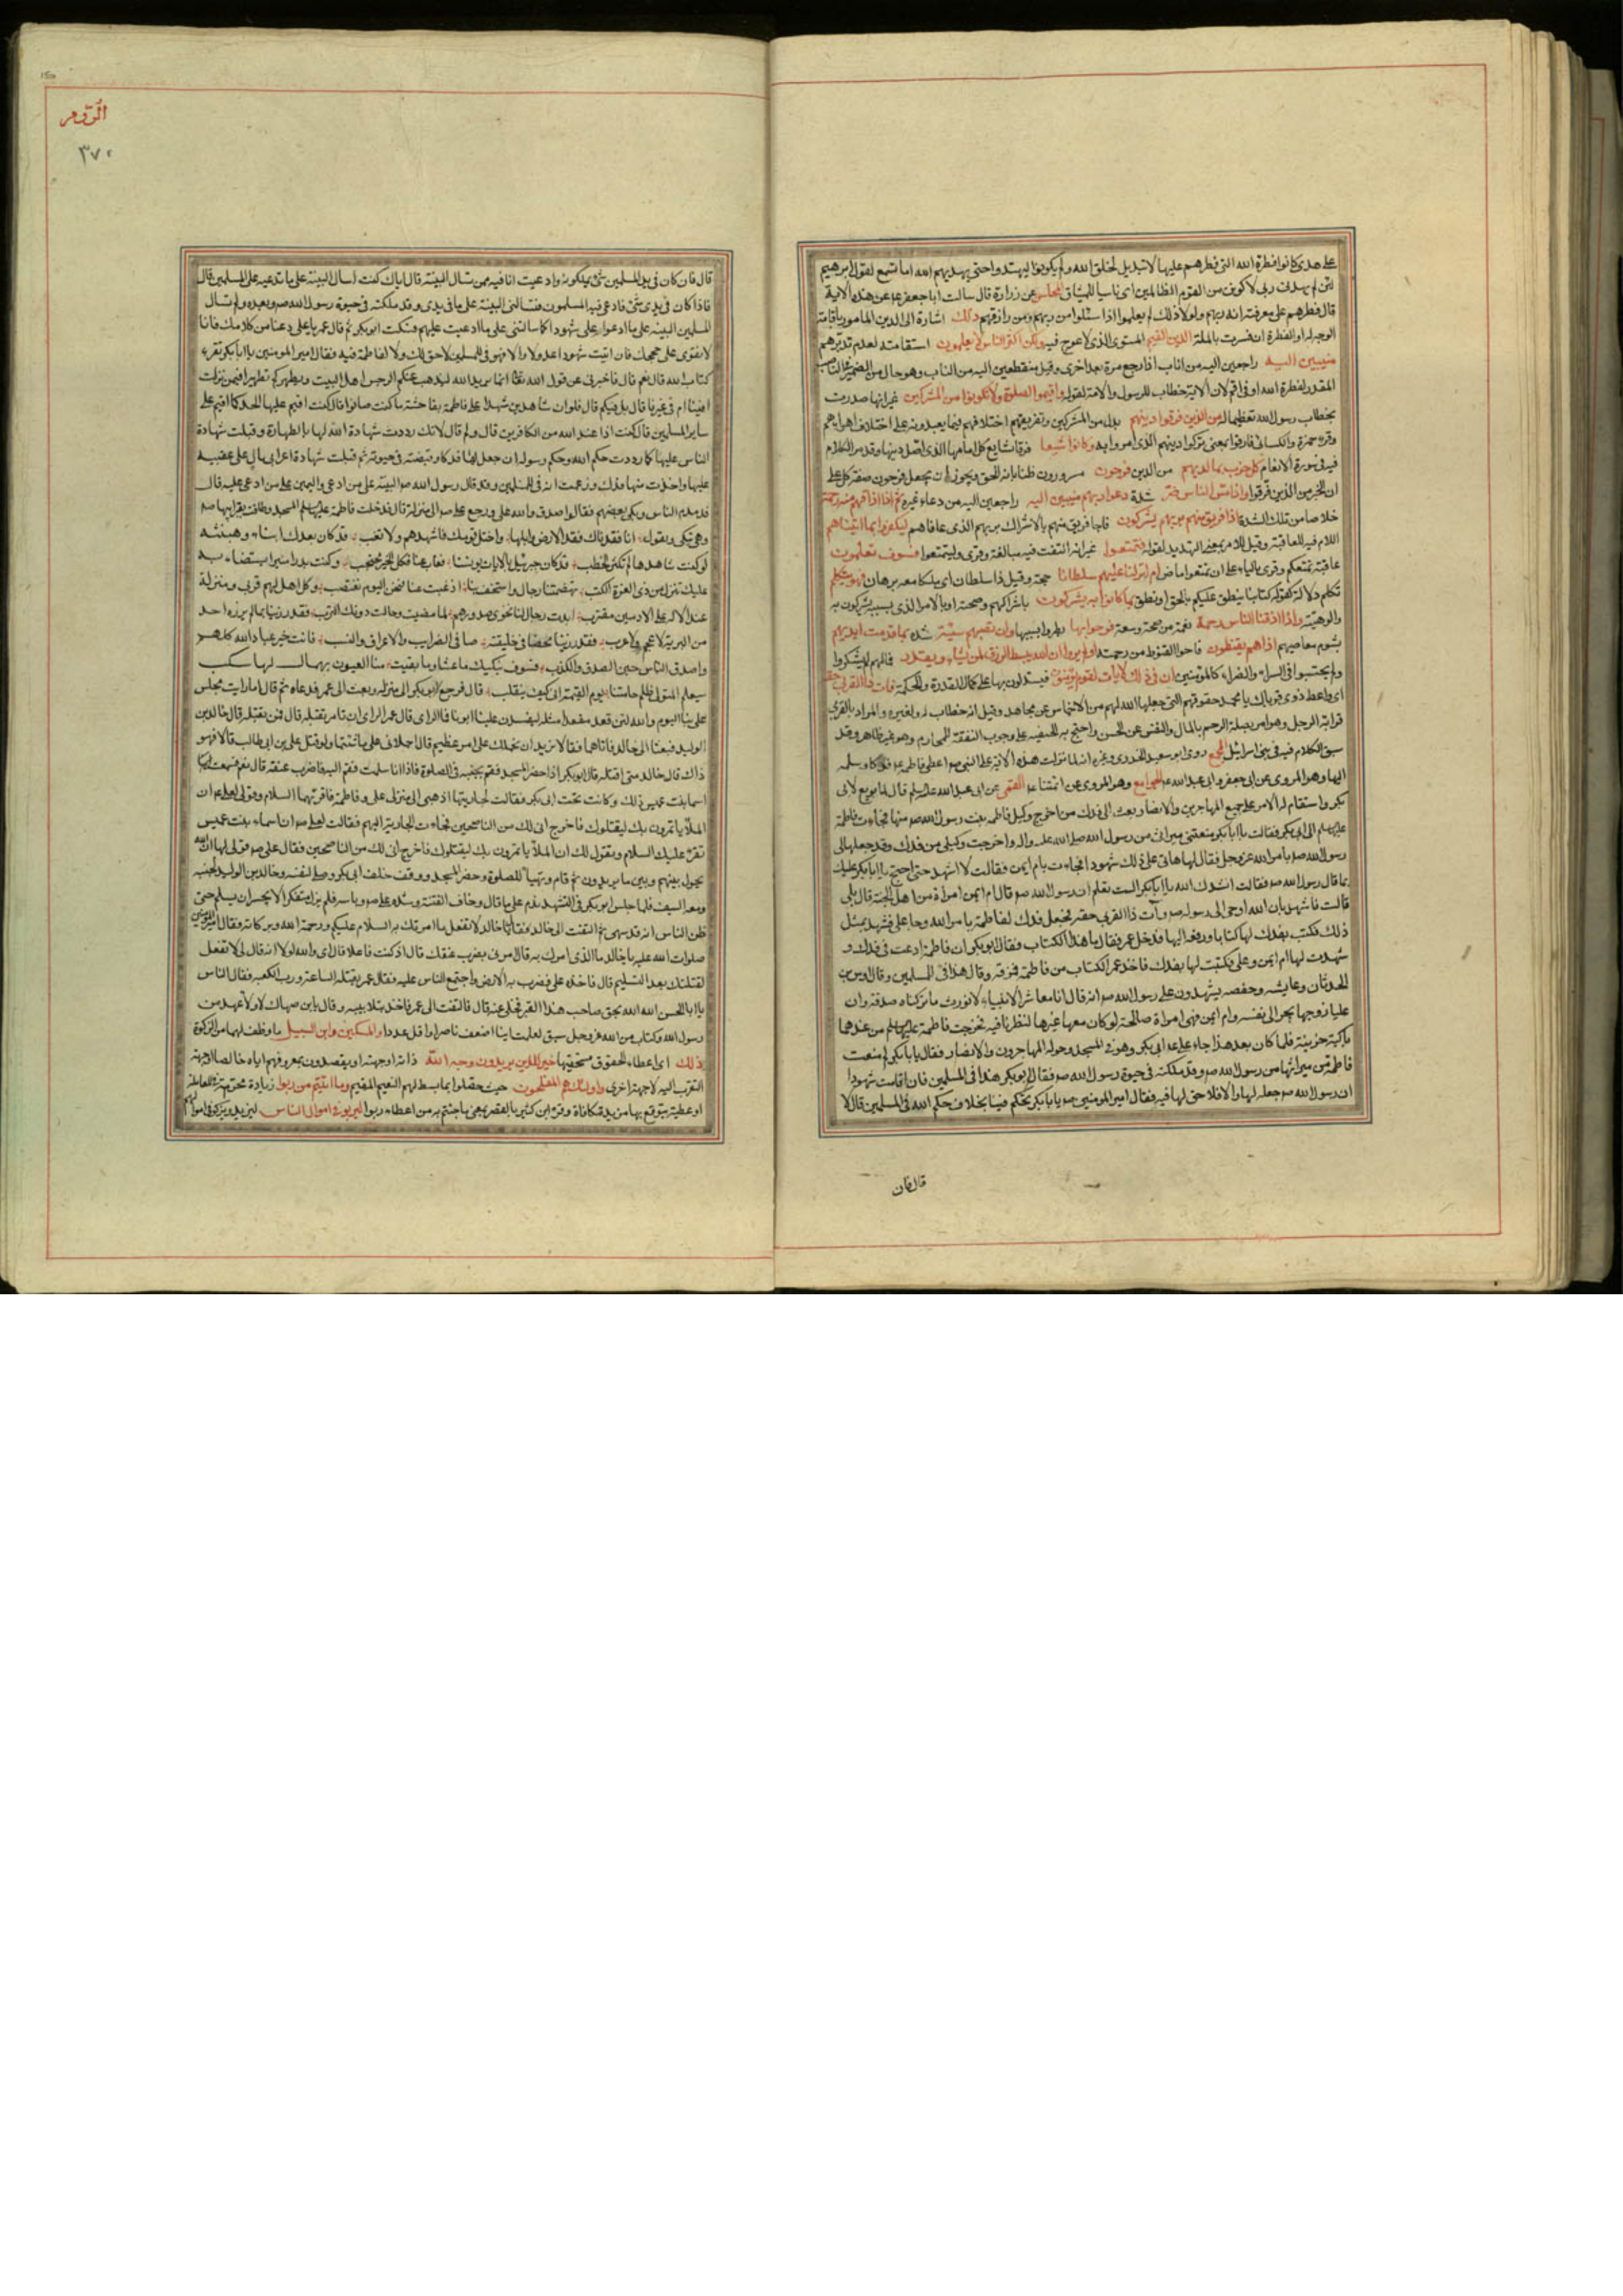 على هدى كانوا فطرة الله التي فطرهم عليها لا تبديل لخلق الله ولم يكونوا ليهتدوا حتى يهديهم الله اما تسمع لقول ابرهيم
لئن لم يهدني ربي لاكونن من القوم الظالمين اى ناسيا للميثاق المحاسن عن زرارة قال سالت اباجعفر ع عن هذه الاية
قال فطرهم على معرفته انه ربهم ولولا ذلك لم يعلموا اذا سئلوا من ربهم ومن رازقهم ذلك اشارة الى الدين المامور باقامة
الوجه له او الفطرة ان فسرت بالملة الدين القيم المستوى الذى لا عوج فيه ولكن اكثر الناس لا يعلمون استقامته لعدم تدبرهم
منيبين اليه راجعين اليه من اناب اذا رجع مرة بعد اخرى وقيل منقطعين اليه من الناب وهو حال من الضمير في الناصب
المقدر لفطرة الله او في اقم لان الاية خطاب للرسول والامة لقوله واقيموا الصلوة ولا تكونوا من المشركين غير انها صدرت
بخطاب رسول الله تعظيما له من الذين فرقوا دينهم بدل من المشركين وتفريقهم اختلافهم فيما يعبدونه على اختلاف اهوائهم
وقرء حمزة والكسائى فارقوا بمعنى تركوا دينهم الذى امروا به وكانوا شيعا فرقا تشايع كل امامها الذى اضل دينها وقد مر الكلام
فيه في سورة الانعام كل حزب بما لديهم فرحون مسرورون ظنا بانه الحق ويجوز ان يجعل فرحون صفة كل على
ان الخبر من الذين فرقوا واذا مس الناس ضر شدة دعوا ربهم منيبين اليه راجعين اليه من دعاء غيره ثم اذا اذاقهم منه رحمة
خلاصا من تلك الشدة اذا فريق منهم بربهم يشركون فاجا فريق منهم بالاشراك بربهم الذى عافاهم ليكفروا بما اتيناهم
اللام فيه للعاقبة وقيل للامر بمعنى التهديد لقوله فتمتعوا غير انه التفت فيه مبالغة وقرى وليتمتعوا فسوف تعلمون
عاقبة تمتعكم وقرى بالياء على ان تمتعوا ماض ام انزلنا عليهم سلطانا حجة وقيل ذا سلطان اى ملكا معه برهان فهو يتكلم
تكلم دلالة كقوله كتابنا ينطق عليكم بالحق او نطق بما كانوا به يشركون باشراكهم وصحته او بالامر الذى بسببه يشركون به
والوهيته واذا اذقنا الناس رحمة نعمة من صحة وسعة فرحوا بها بطروا بسببها وان تصبهم سيئة شدة بما قدمت ايديهم
بشوم معاصيهم اذا هم يقنطون فاجوا القنوط من رحمته اولم يروا ان الله يبسط الرزق لمن يشاء ويقدر فما لهم لم يشكروا
ولم يحتسبوا في السراء والضراء كالمؤمنين ان في ذلك لايات لقوم يؤمنون فيستدلون بها على كمال القدرة والحكمة فات ذا القربى حقه
اى واعط ذوى قرباك يا محمد حقوقهم التى جعلها الله لهم من الاخماس عن مجاهد وقيل انه خطاب له ولغيره والمراد بالقربى
قرابة الرجل وهو امر بصلة الرحم بالمال والنفس عن الحسن واحتج به الحنفية على وجوب النفقة للمحارم وهو غير ظاهر وقد
سبق الكلام فيه في بنى اسرائيل المجمع روى ابو سعيد الخدرى وغيره انه لما نزلت هذه الاية على النبي ص اعطى فاطمة ع فدكا وسلمه
اليها وهو المروى عن ابى جعفر وابى عبد الله ع الجوامع وهو المروى عن ائمتنا ع القمى عن ابى عبد الله عليه السلم قال لما بويع لابى
بكر واستقام له الامر على جميع المهاجرين والانصار بعث الى فدك من اخرج وكيل فاطمة بنت رسول الله ص منها فجاءت فاطمة
عليها السلم الى ابى بكر فقالت يا ابا بكر منعتنى ميراثى من رسول الله صلى الله عليه واله واخرجت وكيلى من فدك وقد جعلها لى
رسول الله ص بامر الله عز وجل فقال لها هاتى على ذلك شهودا فجاءت بام ايمن فقالت لا اشهد حتى احتج يا ابا بكر عليك
بما قال رسول الله ص فقالت انشدك الله يا ابا بكر الست تعلم ان رسول الله ص قال ام ايمن امراة من اهل الجنة قال بلى
قالت فاشهد بان الله اوحى الى رسوله ص وآت ذا القربى حقه فجعل فدك لفاطمة بامر الله وجا على فشهد بمثل
ذلك فكتب بفدك لها كتابا ودفعه اليها فدخل عمر فقال ما هذا الكتاب فقال ابو بكر ان فاطمة ادعت في فدك و
شهدت لها ام ايمن وعلى فكتبت لها بفدك فاخذ عمر الكتاب من فاطمة فمزقه وقال هذا فئ المسلمين وقال اوس بن
الحدثان وعايشه وحفصه يشهدون على رسول الله ص انه قال انا معاشر الانبياء لا نورث ما تركناه صدقة وان
عليا زوجها يجر الى نفسه وام ايمن فهى امراة صالحة لو كان معها غيرها لنظرنا فيه فخرجت فاطمة عليها السلم من عندهما
باكية حزينة فلما كان بعد هذا جاء على ع الى ابى بكر وهو في المسجد وحوله المهاجرون والانصار فقال يا ابا بكر لم منعت
فاطمة من ميراثها من رسول الله ص وقد ملكته في حيوة رسول الله ص فقال ابو بكر هذا فئ المسلمين فان اقامت شهودا
ان رسول الله ص جعله لها والا فلا حق لها فيه فقال امير المومنين ص يا ابا بكر تحكم فينا بخلاف حكم الله في المسلمين قال لا
قال فان
الروم
٣٧٠
قال فان كان في يد المسلمين شئ يملكونه وادعيت انا فيه ممن تسال البينة قال اياك كنت اسال البينة على ما تدعيه على المسلمين قال
فاذا كان في يدى شئ فادعى فيه المسلمون فتسالنى البينة على ما في يدى وقد ملكته في حيوة رسول الله ص وبعده ولم تسال
المسلمين البينة على ما ادعوا على شهودا كما سالتنى على ما ادعيت عليهم فسكت ابو بكر ثم قال عمر يا على دعنا من كلامك فانا
لا نقوى على حججك فان اتيت شهودا عدولا والا فهو فئ المسلمين لا حق لك ولا لفاطمة فيه فقال امير المومنين يا ابا بكر تقرء
كتاب الله قال نعم قال فاخبرنى عن قول الله تعالى انما يريد الله ليذهب عنكم الرجس اهل البيت ويطهركم تطهيرا فيمن نزلت
افينا ام في غيرنا قال بل فيكم قال فلو ان شاهدين شهدا على فاطمة بفاحشة ما كنت صانعا قال كنت اقيم عليها الحد كما اقيم على
ساير المسلمين قال كنت اذا عند الله من الكافرين قال ولم قال لانك رددت شهادة الله لها بالطهارة وقبلت شهادة
الناس عليها كما رددت حكم الله وحكم رسوله ان جعل لها فدك وقبضته في حيوته ثم قبلت شهادة اعرابى بال على عقبيه
عليها واخذت منها فدك وزعمت انه فئ المسلمين وقد قال رسول الله ص البينة على من ادعى واليمين على من ادعى عليه قال
فدمدم الناس وبكى بعضهم فقالوا صدق والله على ورجع على ص الى منزله قال فدخلت فاطمة عليها السلم المسجد وطافت بقبر ابيها ص
وهى تبكى وتقول انا فقدناك فقد الارض وابلها واختل قومك فاشهدهم ولا تغب قد كان بعدك انباء وهنبثة
لو كنت شاهدها لم تكثر الخطب قد كان جبرئيل بالايات يونسنا فغاب عنا فكل الخير محتجب وكنت بدرا منيرا يستضاء به
عليك تنزل من ذى العزة الكتب تهضمتنا رجال واستخف بنا اذ غبت عنا فنحن اليوم نغتصب وكل اهل لهم قربى ومنزلة
عند الاله على الادنين مقترب ابدت رجال لنا نجوى صدورهم لما مضيت وحالت دونك الترب فقد رزئنا بما لم يرزه احد
من البرية لا عجم ولا عرب فقد رزينا محضا في خليقته صافى الضرايب والاعراق والنسب فانت خير عباد الله كلهم
واصدق الناس حين الصدق والكذب فسوف نبكيك ما عشنا وما بقيت منا العيون بهمال لها سكب
سيعلم المتولى ظلم حامتنا يوم القيمة انى كيف ينقلب قال فرجع ابو بكر الى منزله وبعث الى عمر فدعاه ثم قال اما رايت مجلس
على بنا اليوم والله لئن قعد مقعدا مثله ليفسدن علينا امرنا فما الراى قال عمر الراى ان تامر بقتله قال فمن يقتله قال خالد بن
الوليد فبعثا الى خالد فاتاهما فقالا نريد ان نحملك على امر عظيم قال احملانى على ما شئتما ولو قتل على بن ابى طالب قالا فهو
ذاك قال خالد متى اقتله قال ابو بكر اذا حضر المسجد فقم بجنبه في الصلوة فاذا انا سلمت فقم اليه فاضرب عنقه قال نعم فسمعت
اسما بنت عميس ذلك وكانت تحت ابى بكر فقالت لجاريتها اذهبى الى منزل على وفاطمة فاقرئهما السلام وقولى لعلى ع ان
الملأ ياتمرون بك ليقتلوك فاخرج انى لك من الناصحين فجاءت الجارية اليهم فقالت لعلى ص ان اسماء بنت عميس
تقرء عليك السلام وتقول لك ان الملأ ياتمرون بك ليقتلوك فاخرج انى لك من الناصحين فقال على ص قولى لها ان الله
يحول بينهم وبين ما يريدون ثم قام وتهيأ للصلوة وحضر المسجد ووقف خلف ابى بكر وصلى لنفسه وخالد بن الوليد بجنبه
ومعه السيف فلما جلس ابو بكر في التشهد ندم على ما قال وخاف الفتنة وشدة على ص وباسه فلم يزل متفكرا لا يجسر ان يسلم حتى
ظن الناس انه قد سهى ثم التفت الى خالد فقال يا خالد لا تفعل ما امرتك به السلام عليكم ورحمة الله وبركاته فقال امير المومنين
صلوات الله عليه يا خالد ما الذى امرك به قال امرنى بضرب عنقك قال اوكنت فاعلا قال اى والله لولا انه قال لى لا تفعل
لقتلتك بعد التسليم قال فاخذه على فضرب به الارض واجتمع الناس عليه فقال عمر يقتله الساعة ورب الكعبه فقال الناس
يا ابا الحسن الله الله بحق صاحب هذا القبر فخلى عنه قال فالتفت الى عمر فاخذ بتلابيبه وقال يا بن صهاك لولا عهد من
رسول الله وكتاب من الله عز وجل سبق لعلمت اينا اضعف ناصرا واقل عددا والمسكين وابن السبيل ما وظف لهما من الزكوة
ذلك اى اعطاء الحقوق مستحقيها خير للذين يريدون وجه الله ذاته او جهته او يقصدون بمعروفهم اياه خالصا او جهة
التقرب اليه لا جهة اخرى واولئك هم المفلحون حيث حصلوا بما بسط لهم النعيم المقيم وما اتيتم من ربوا زيادة محرمة في المعاملة
او عطية يتوقع بها مزيد مكافاة وقرء ابن كثير بالقصر بمعنى ما جئتم به من اعطاء ربوا ليربو في اموال الناس ليزيد ويزكو في اموالهم